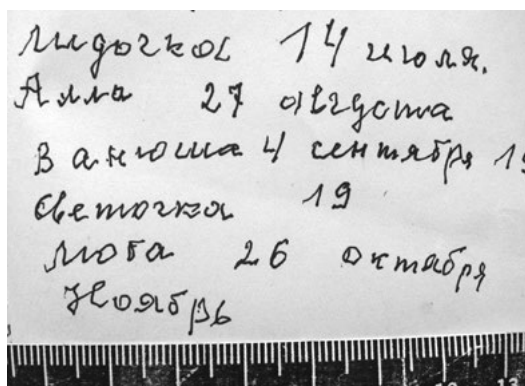 Лидочка 14 июля.
Алла 27 августа
Ванюша 4 сентября 19
Светочка 19
Люба 26 октября
Ноябрь